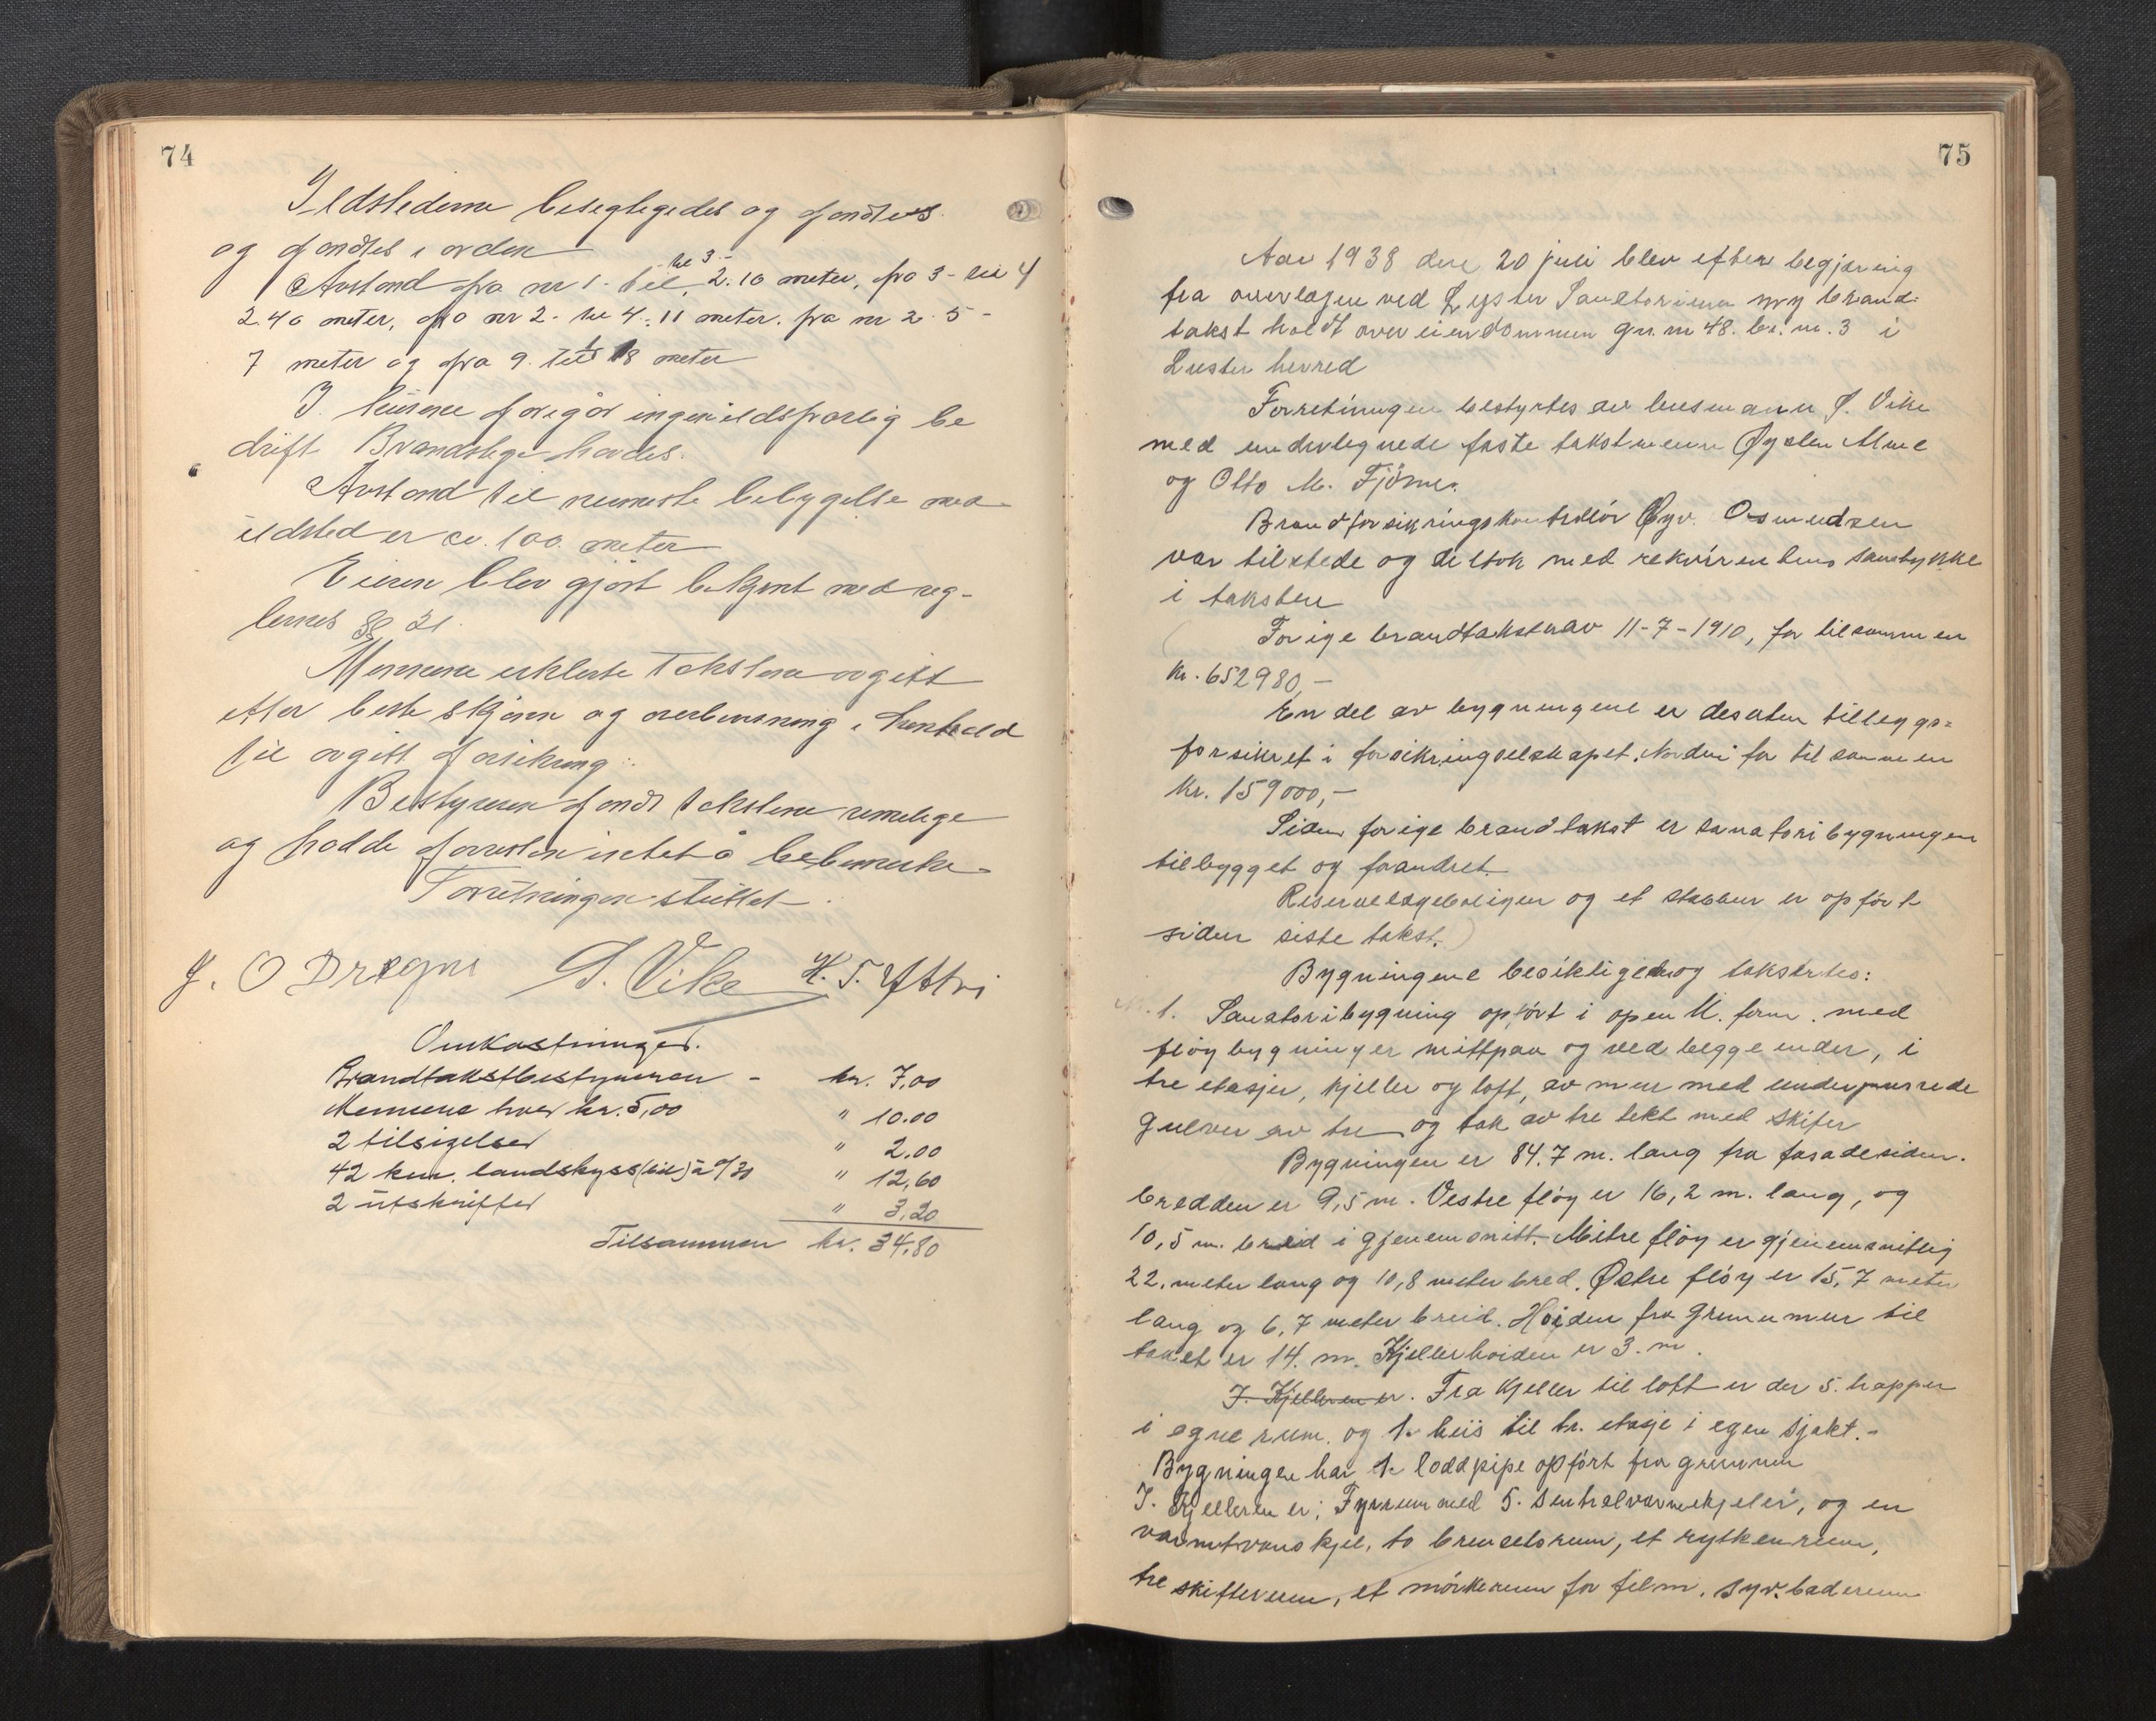 74
Ildstederne besegtigedes og fandtes
og fandtes i orden
Avstand fra nr 1 - til 2. 10 meter, fra 3 - til 4
til 3 -
2.40 meter, fra nr 2 - til 4. 11 meter. fra nr 2 5 -
7 meter og fra 9. til 18 meter
I husene foregår ingen ildsfarlig be
drift Brandstige havdes.
Avstand til nermeste bebygelse med
ildsted er ca. 100 meter
Eieren blev gjort bekjent med reg-
lernes § 21.
Mennene erklerte Takstene avgitt
etter beste skjønn og overbevisning i henhold
til avgitt forsikring.
Bestyreren fandt takstene rimelige
og hadde forresten intet å bebemerke.
Forretningen sluttet
J. O Dregni S. Vike H. T. Ystri
Omkostninger.
Brandtakstbestyreren - kr. 7,00
Mennene hver kr. 5,00 " 10.00
2 tilsigelser " 2.00
42 km. landskyss (bil) à 0/30 " 12,60
2 utskrifter " 3,20
Tilsammen kr. 34,80
75
Aar 1938 den 20 juli blev efter begjæring
fra overlægen ved Lyster Sanatorium ny brand-
takst holdt over eiendommen gr. nr 48. br. nr. 3 i
Luster herred
Forretningen bestyrtes av lensmann S. Vike
med undertegnede faste takstmenn Øysten Alme
og Otto M. Fjørner.
Brandforsikringskontrollör Øyv. Osmundsen
var tilstede og deltok med rekvirentens samtykke
i taksten
Forige brandtakst var 11-7-1910, for tilsammen
kr. 652980,-
En del av bygningene er desuten tilleggs=
forsikret i forsikringselskapet. Norden for tilsammen
kr. 159000,-
Siden forige brandtakst er sanatoribygningen
tilbygget og forandret.
Reservelægeboligen og et stabbur er opfört
siden siste takst.
Bygningene besiktigedes og takseртes:
Nr. 1. Sanatoribygning opfört i open U. form. med
flöybygninger mittpaa og ved begge ender, i
tre etasjer, kjeller og loft, av mur med underpussede
gulver av tre og tak av tre tekt med skifer
Bygningen er 84.7 m. lang fra fasadesiden.
bredden er 9,5 m. Vestre flöy er 16,2 m. lang, og
10,5 m. breid i gjenemsnitt. Mitre flöy er gjenemsnitlig
22. meter lang og 10,8 meter bred. Østre flöy er 15,7 meter
lang og 6,7 meter breid. Höiden fra grunnmur til
taket er 14. m. Kjellerhöiden er 3. m.
I. Kjelleren er. Fra kjeller til loft er der 5. trapper
i egne rum. og 1. heis til tr. etasje i egen sjakt.-
Bygningen har 1. loddpipe opfört fra grunnen
I. Kjelleren er; Fyrrum med 5. sentralvarmekjeler, og en
varmtvanskjel. to brenselsrum, et rytkenrum,
tre skifterum, et mörkerum for film. syv. baderum